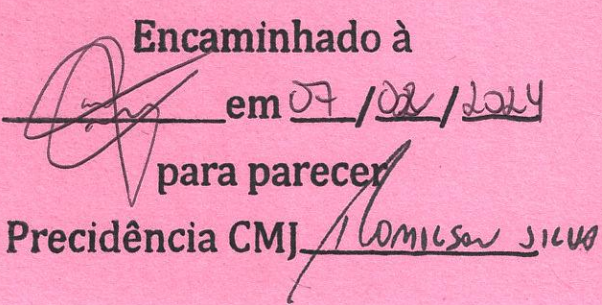 Encaminhado à
em 07/02/2024
para parecer
Precidência CMJ Romilson Silva